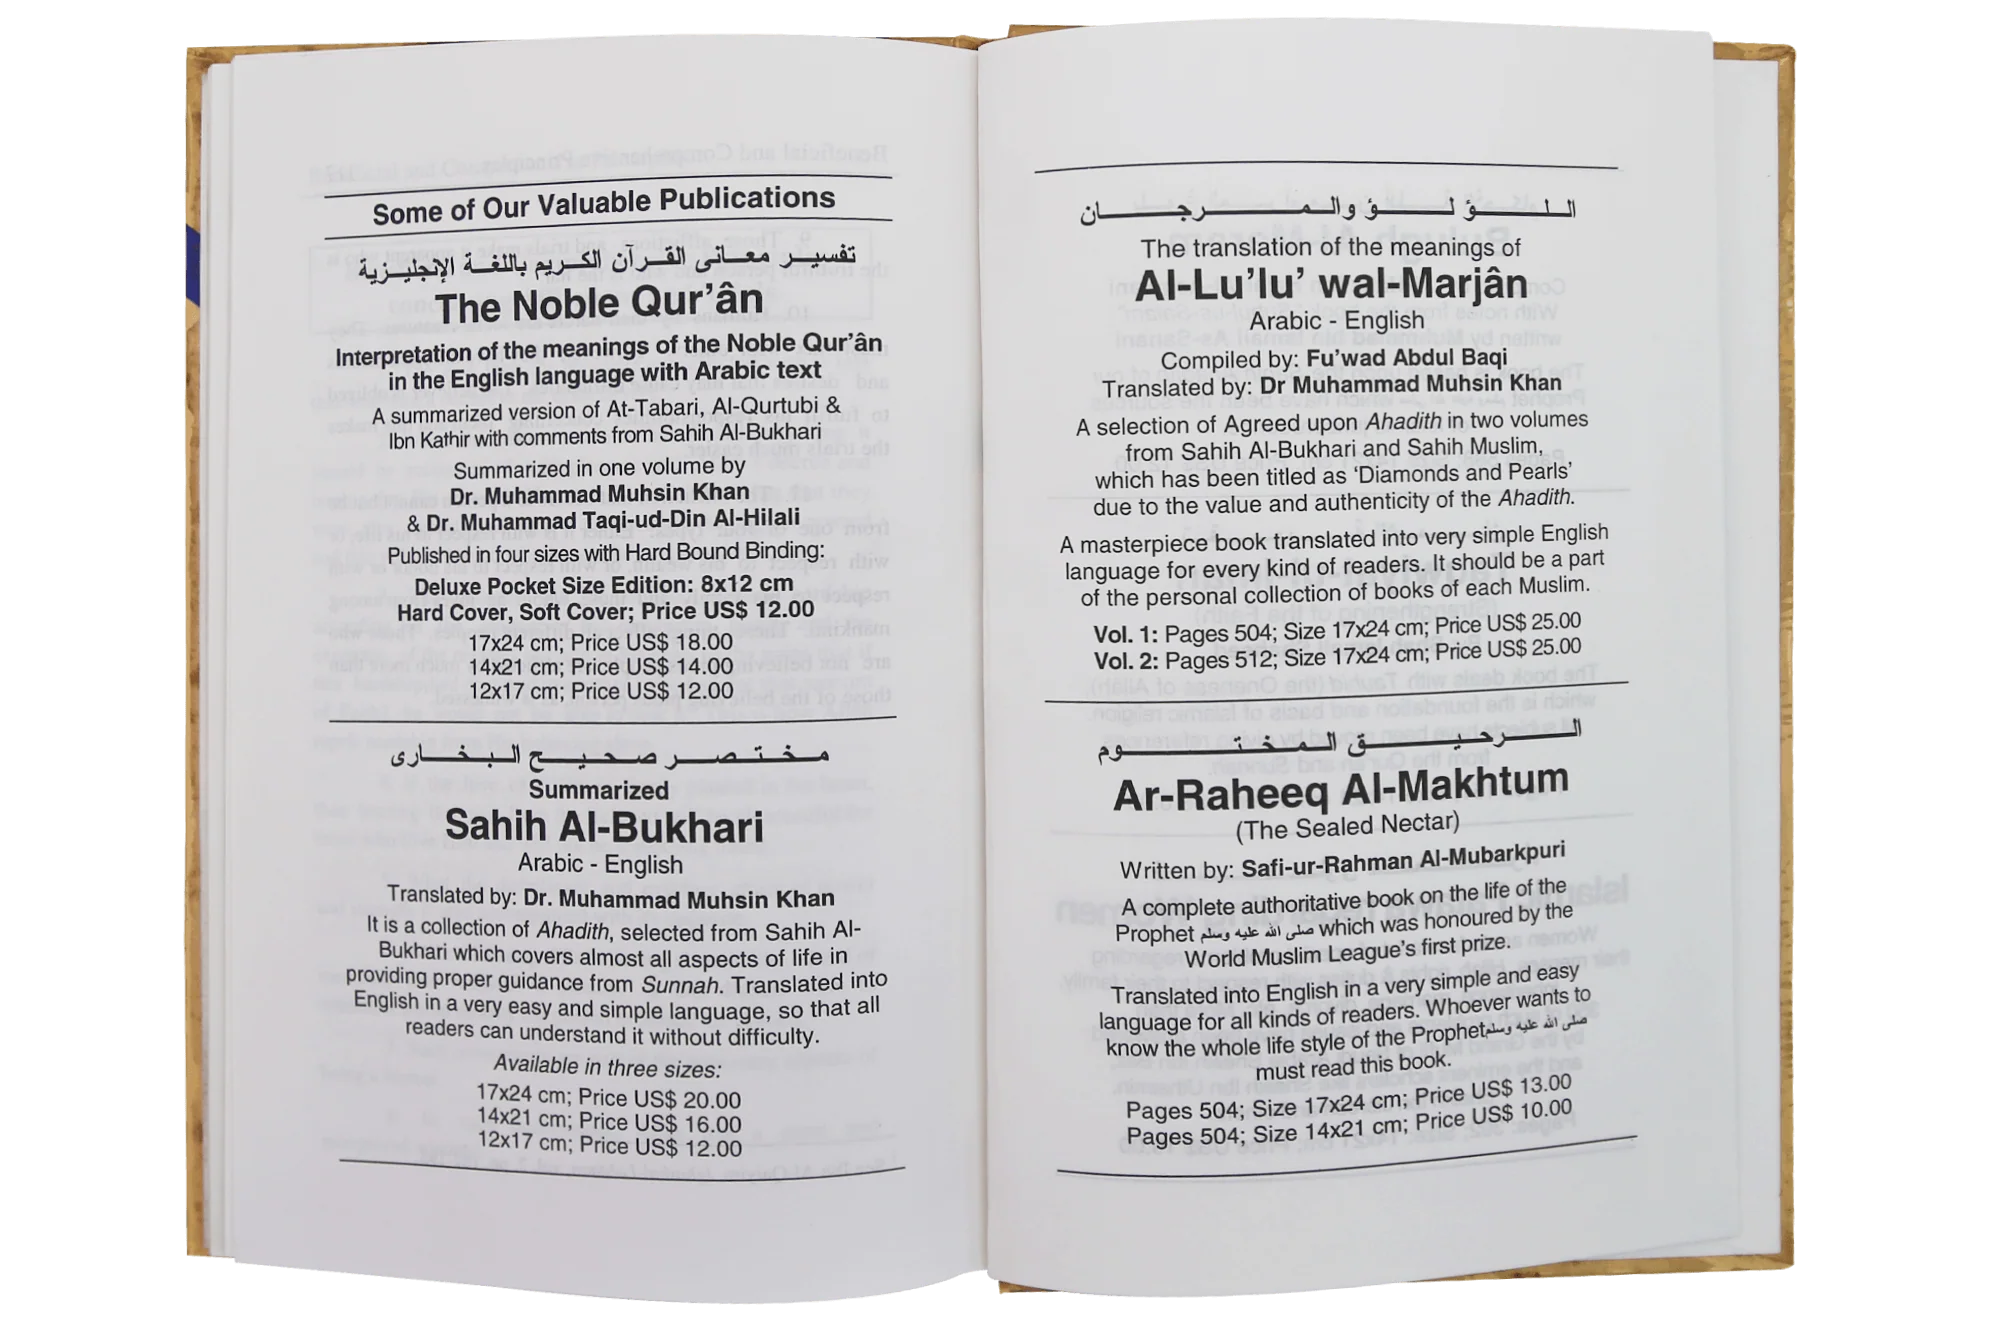 Some of Our Valuable Publications
تفسير معانى القرآن الكريم باللغة الإنجليزية
The Noble Qur’ân
Interpretation of the meanings of the Noble Qur’ân
in the English language with Arabic text
A summarized version of At-Tabari, Al-Qurtubi &
Ibn Kathir with comments from Sahih Al-Bukhari
Summarized in one volume by
Dr. Muhammad Muhsin Khan
& Dr. Muhammad Taqi-ud-Din Al-Hilali
Published in four sizes with Hard Bound Binding:
Deluxe Pocket Size Edition: 8x12 cm
Hard Cover, Soft Cover; Price US$ 12.00
17x24 cm; Price US$ 18.00
14x21 cm; Price US$ 14.00
12x17 cm; Price US$ 12.00
مختصر صحيح البخارى
Summarized
Sahih Al-Bukhari
Arabic - English
Translated by: Dr. Muhammad Muhsin Khan
It is a collection of Ahadith, selected from Sahih Al-
Bukhari which covers almost all aspects of life in
providing proper guidance from Sunnah. Translated into
English in a very easy and simple language, so that all
readers can understand it without difficulty.
Available in three sizes:
17x24 cm; Price US$ 20.00
14x21 cm; Price US$ 16.00
12x17 cm; Price US$ 12.00
اللؤلؤ والمرجان
The translation of the meanings of
Al-Lu’lu’ wal-Marjân
Arabic - English
Compiled by: Fu’wad Abdul Baqi
Translated by: Dr Muhammad Muhsin Khan
A selection of Agreed upon Ahadith in two volumes
from Sahih Al-Bukhari and Sahih Muslim,
which has been titled as ‘Diamonds and Pearls’
due to the value and authenticity of the Ahadith.
A masterpiece book translated into very simple English
language for every kind of readers. It should be a part
of the personal collection of books of each Muslim.
Vol. 1: Pages 504; Size 17x24 cm; Price US$ 25.00
Vol. 2: Pages 512; Size 17x24 cm; Price US$ 25.00
الرحيق المختوم
Ar-Raheeq Al-Makhtum
(The Sealed Nectar)
Written by: Safi-ur-Rahman Al-Mubarkpuri
A complete authoritative book on the life of the
Prophet صلى الله عليه وسلم which was honoured by the
World Muslim League’s first prize.
Translated into English in a very simple and easy
language for all kinds of readers. Whoever wants to
know the whole life style of the Prophet صلى الله عليه وسلم
must read this book.
Pages 504; Size 17x24 cm; Price US$ 13.00
Pages 504; Size 14x21 cm; Price US$ 10.00